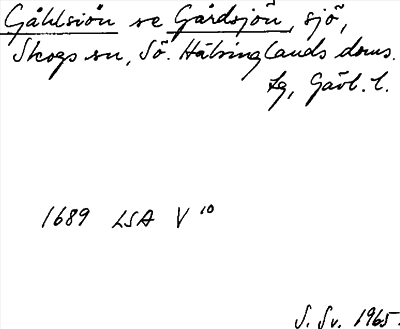 Gåhlsiön se Gårdsjön, sjö,
Skogs sn, Sö. Hälsinglands doms.
lg, Gävl. l.
1689 LSA V 10
S. Sv. 1965.